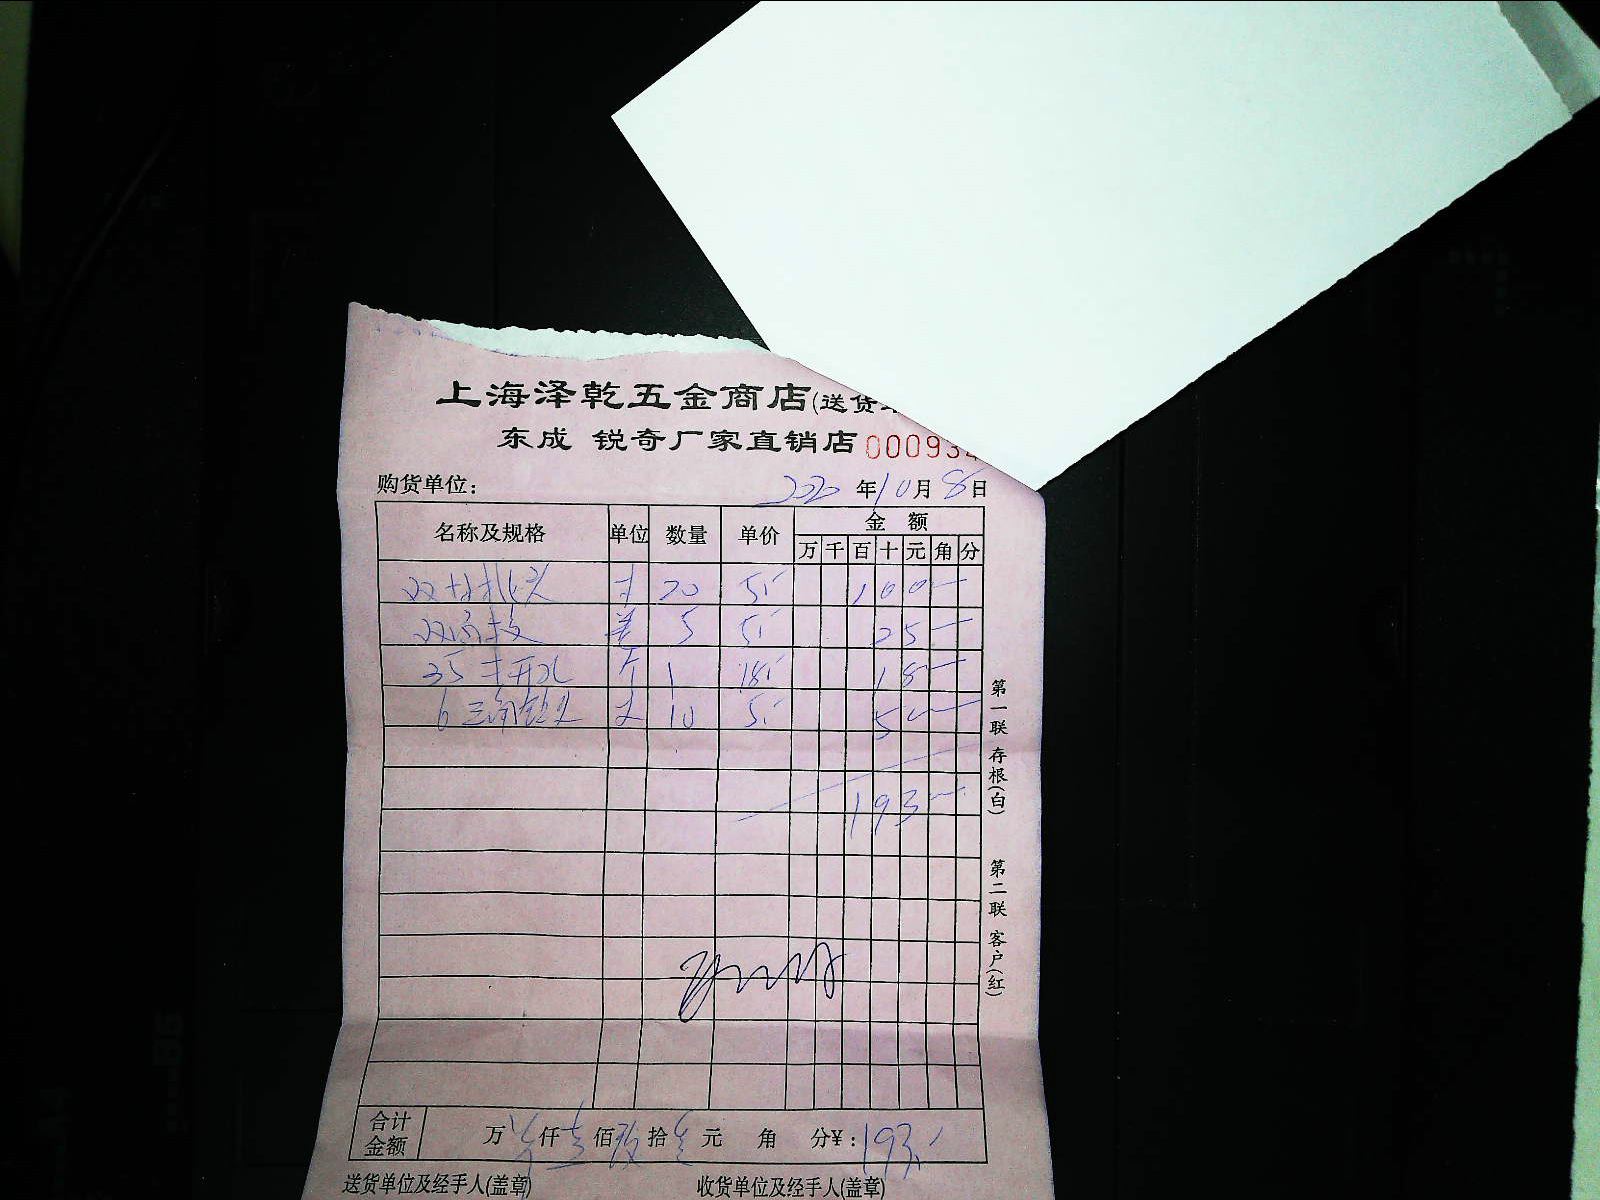 上海泽乾五金商店(送货
东成 锐奇厂家直销店 00093
购货单位: 2020年10月8日
名称及规格 单位 数量 单价 金额
万 千 百 十 元 角 分
20 5 100
5 5 25
35 开孔 1 18 18
6 10 5 50
193
第一联 存根(白)
第二联 客户(红)
合计金额 万 仟 佰 拾 元 角 分¥: 193
送货单位及经手人(盖章) 收货单位及经手人(盖章)